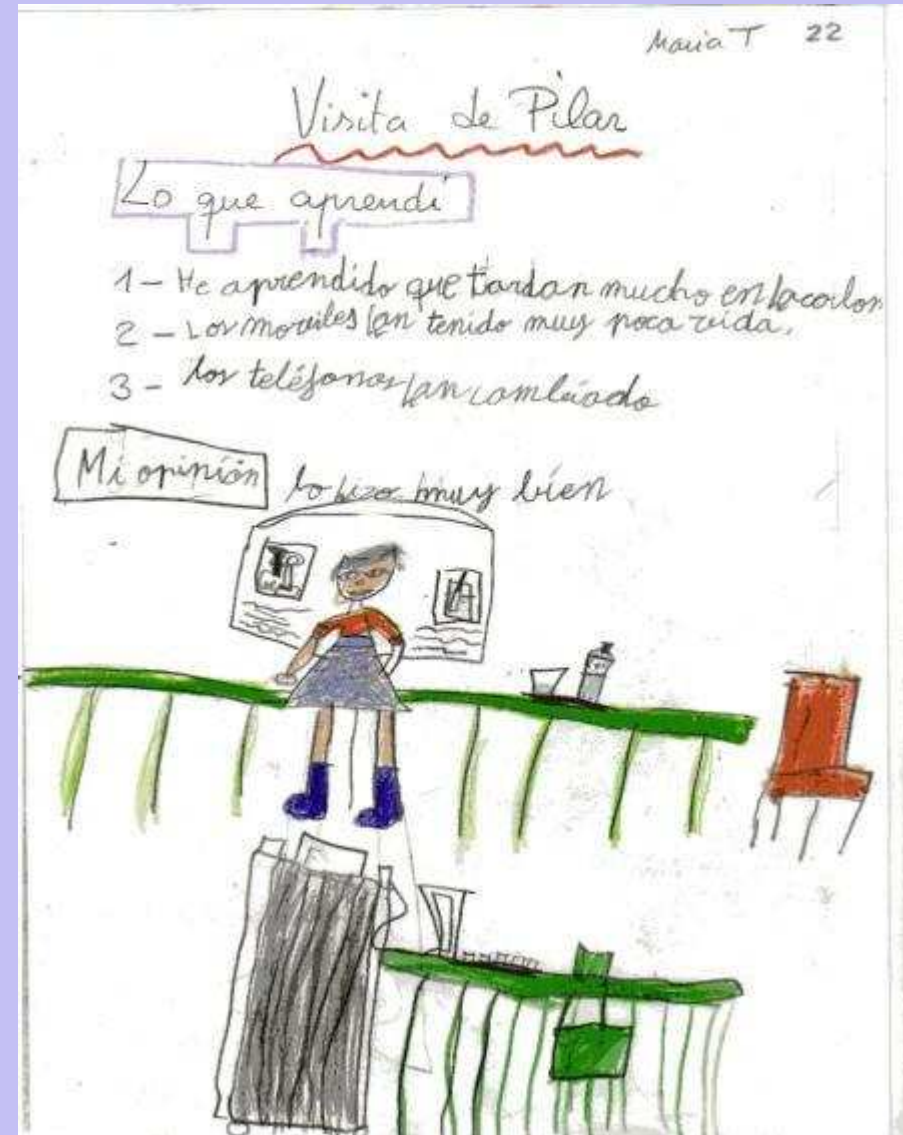 Maria T 22
Visita de Pilar
Lo que aprendi
1 - He aprendido que tardan mucho en
2 - Los moviles han tenido muy poca vida.
3 - los teléfonos han cambiado
Mi opinión lo hizo muy bien